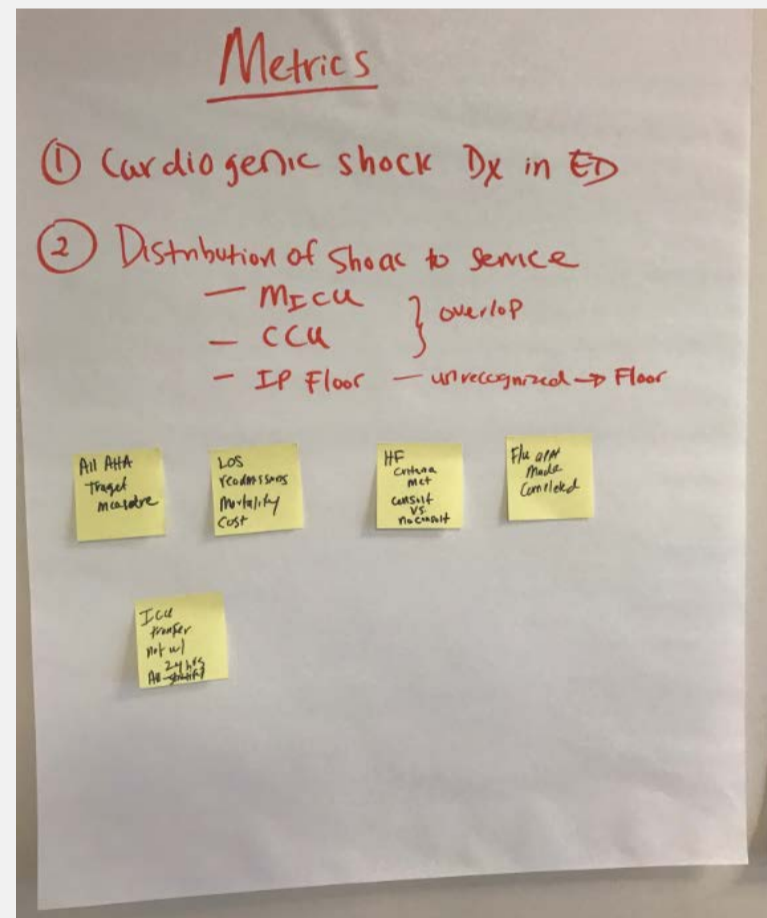 Metrics
① Cardiogenic shock Dx in ED
② Distribution of Shock to service
— MICU
— CCU
} overlap
— IP Floor — unrecognized → Floor
All AHA
Traget
measure
LOS
readmissions
Mortality
Cost
HF
Criteria
met
consult
vs.
no consult
F/u appt
Made
Completed
ICU
transfer
not w/
24 hrs